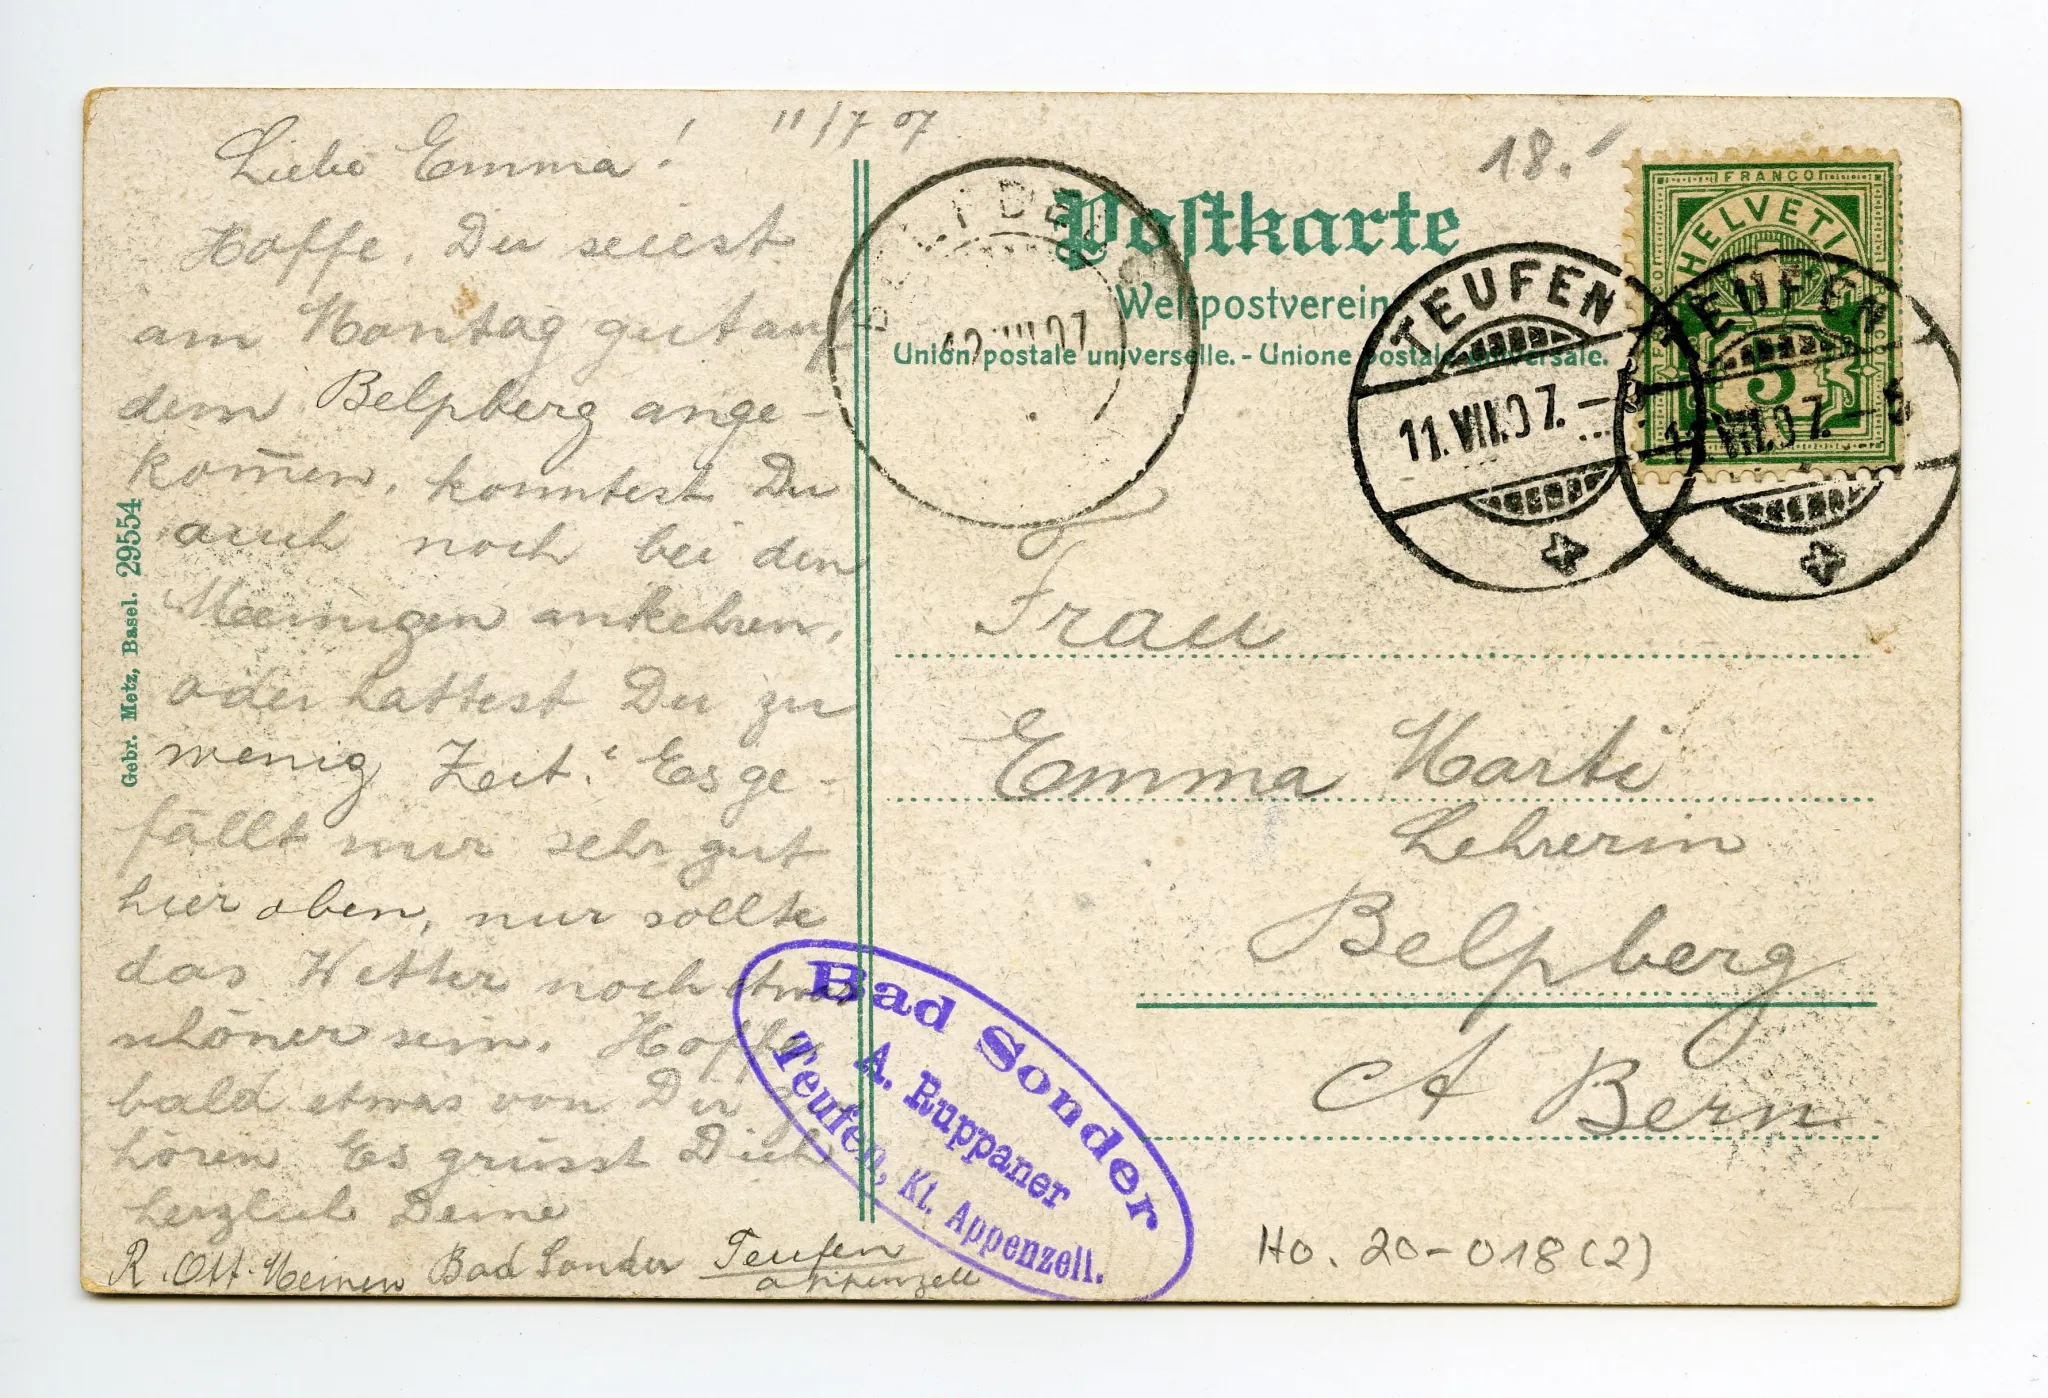 11/7 07
Liebe Emma!
Hoffe, Du seiest
am Montag gut auf
dem Belpberg ange-
kom̅en, konntest Du
auch noch bei den
Meinigen ankehren,
oder hattest Du zu
wenig Zeit. Es ge-
fällt mir sehr gut
hier oben, nur sollte
das Wetter noch etwas
schöner sein. Hoffe
bald etwas von Dir zu
hören Es grüsst Dich
herzlich Deine
R. Ott-Meinen Bad Sonder Teufen
appenzell
Gebr. Metz, Basel. 29554
18.
Postkarte
Weltpostverein
Union postale universelle. - Unione postale universale.
12.VII.07
TEUFEN
11.VII.07.-
TEUFEN
11.VII.07.-5
FRANCO
HELVETIA
5
Frau
Emma Marti
Lehrerin
Belpberg
Ct Bern
Bad Sonder
A. Ruppaner
Teufen, Kt. Appenzell.
Ho. 20-018(2)